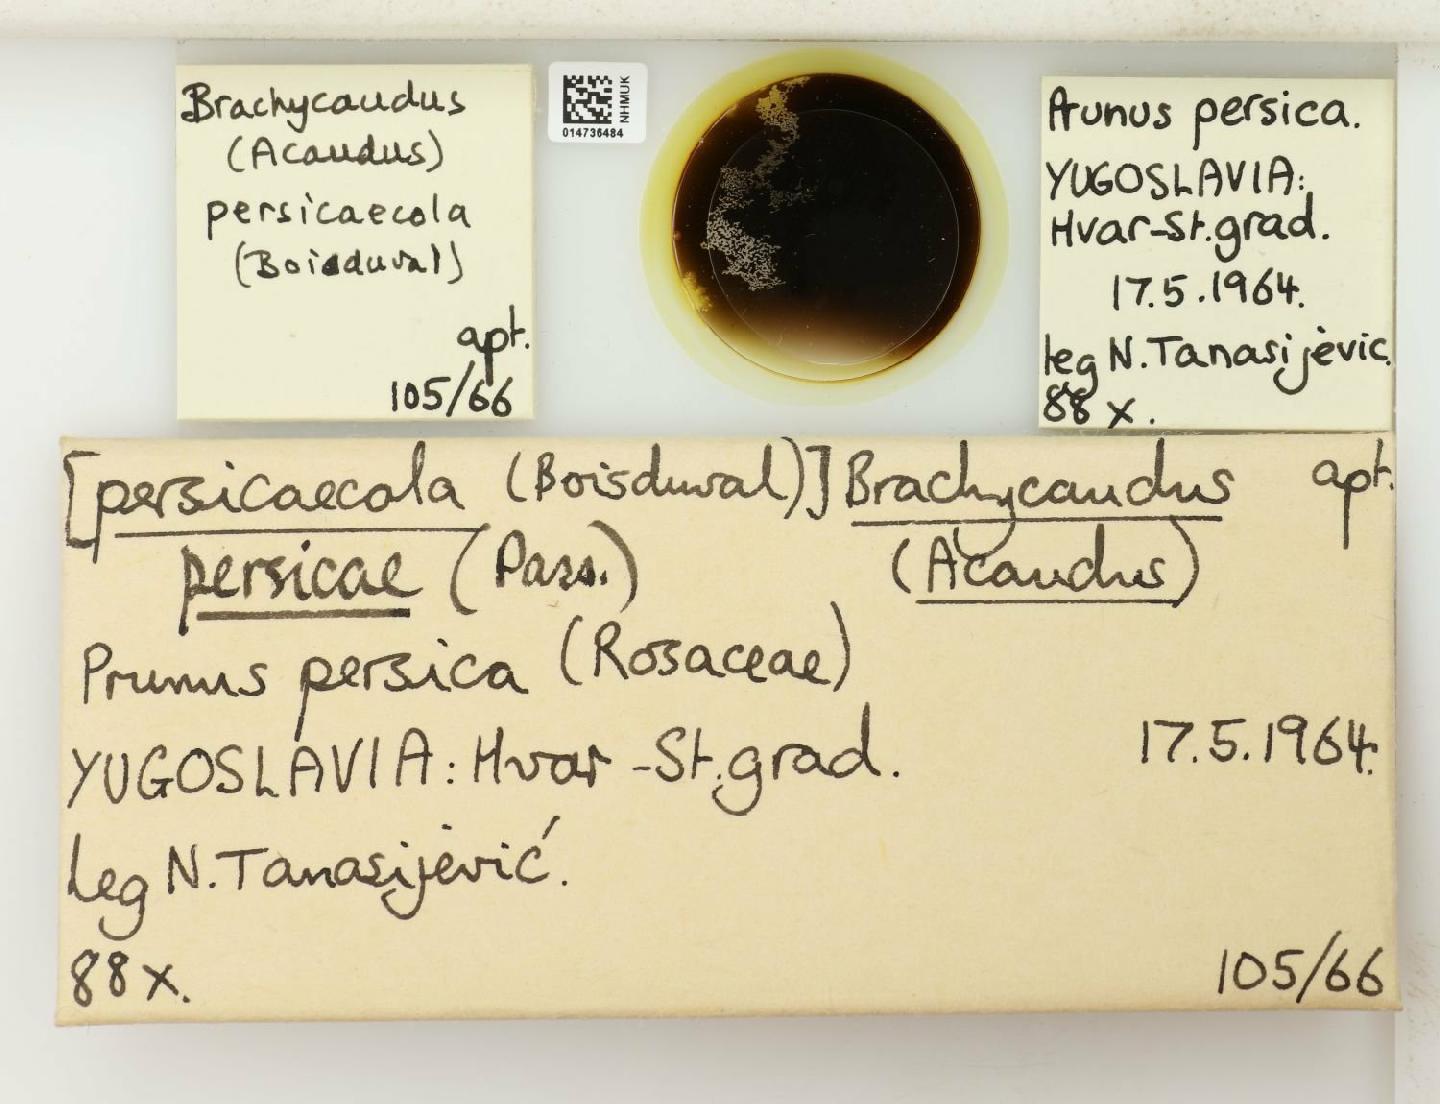 Brachycaudus
(Acaudus)
persicaecola
(Boisduval)
apt.
105/66
NHMUK
014736484
Prunus persica.
YUGOSLAVIA:
Hvar-St.grad.
17.5.1964.
leg N.Tanasijèvic.
88 x.
[persicaecola (Boisduval)] Brachycaudus apt.
persicae (Pass.) (Acaudus)
Prunus persica (Rosaceae)
YUGOSLAVIA: Hvar-St.grad. 17.5.1964.
Leg N.Tanasijèvić.
88 x. 105/66